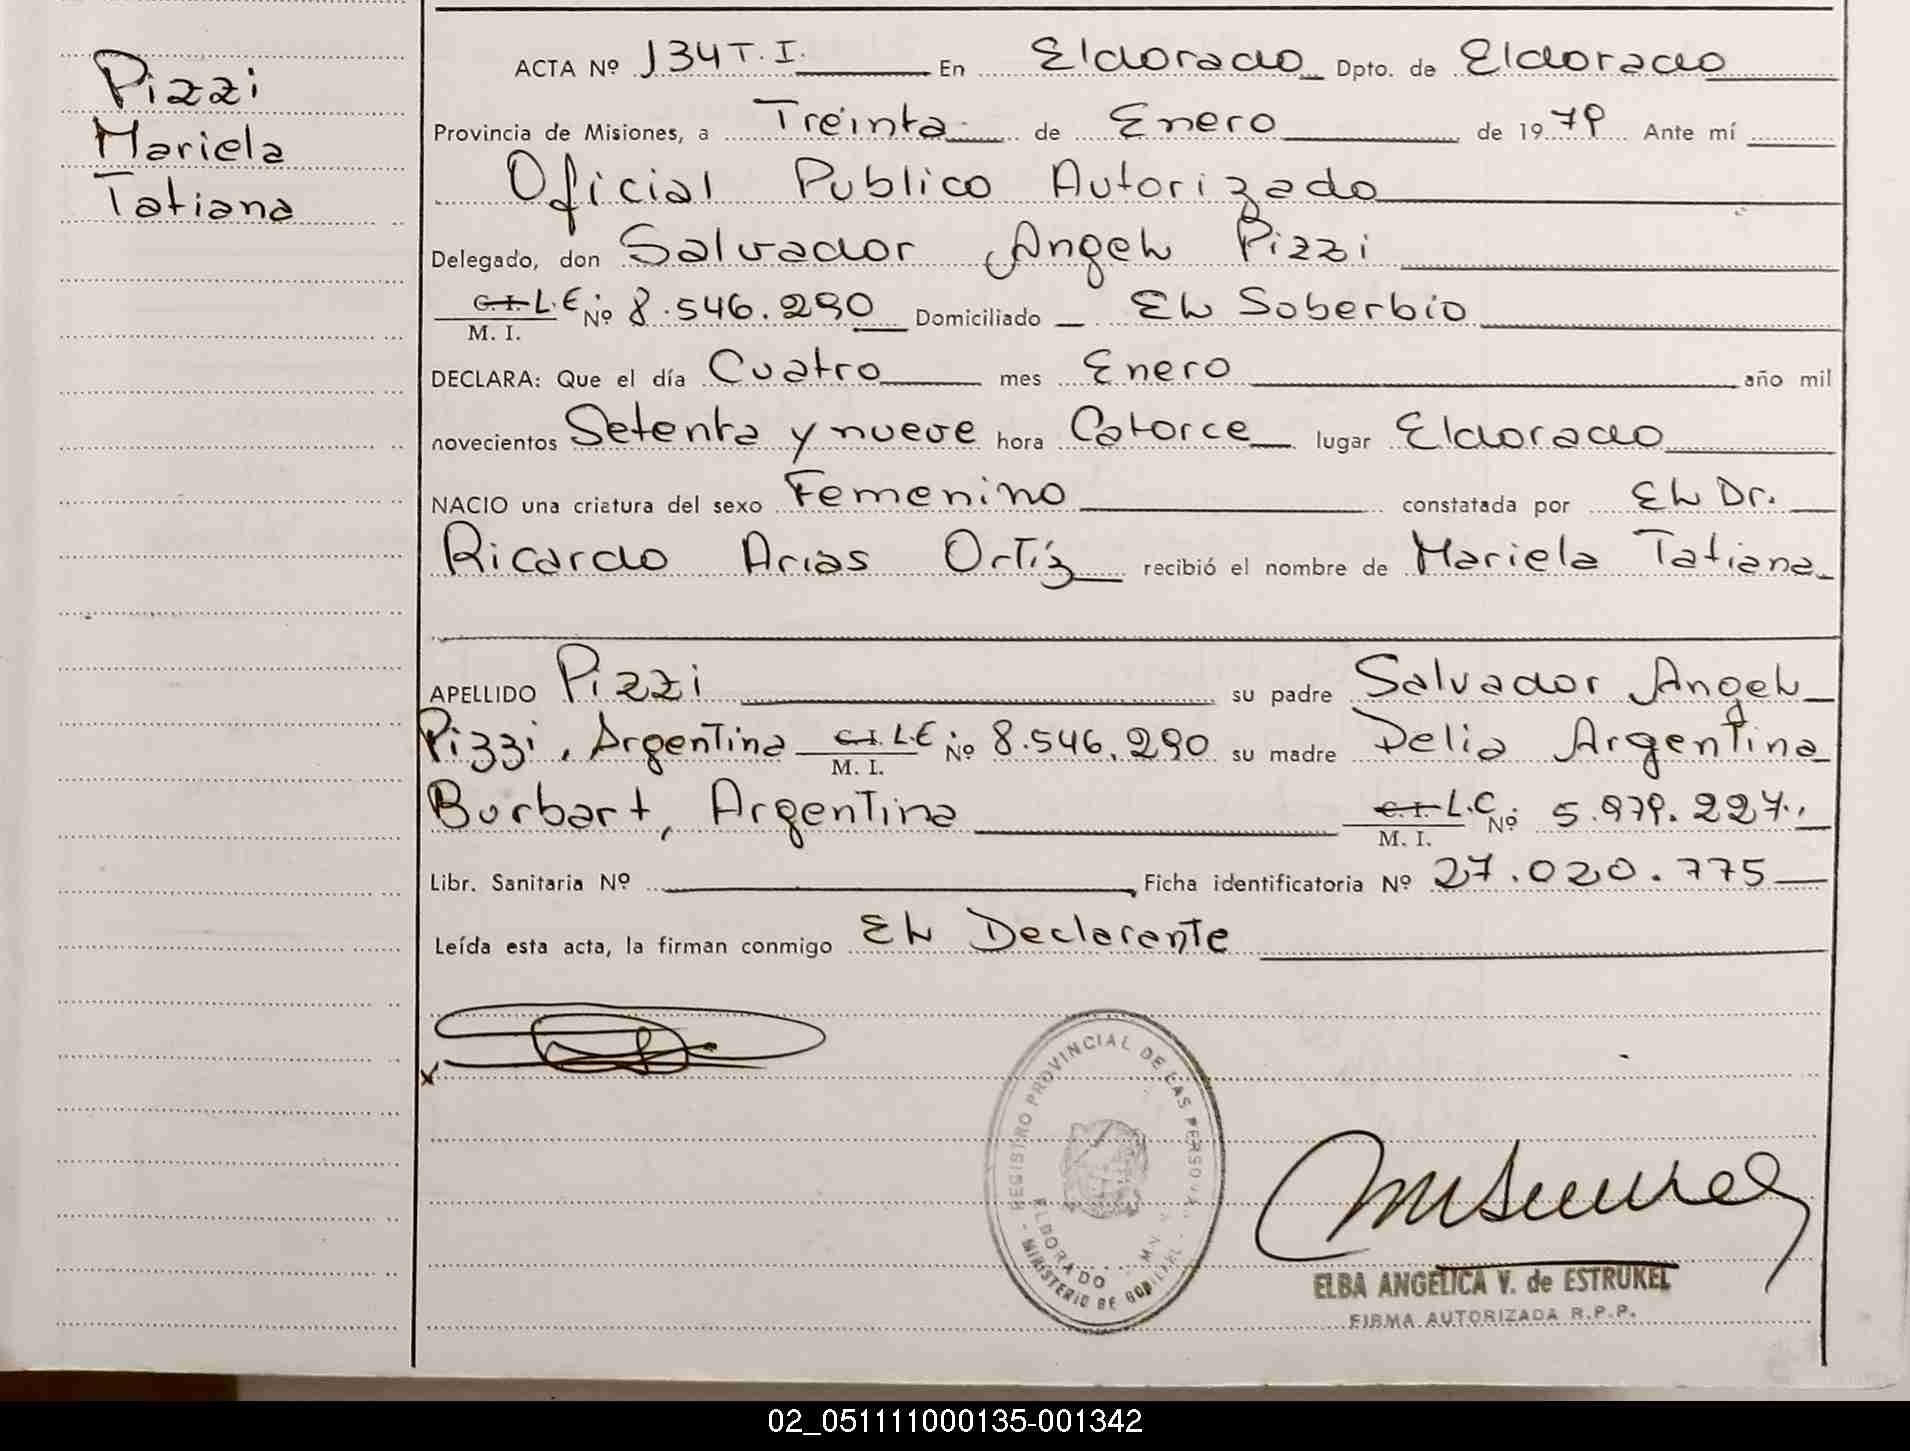 Pizzi
Mariela
Tatiana
ACTA Nº 134 T. I. En Eldorado Dpto. de Eldorado
Provincia de Misiones, a Treinta de Enero de 1979 Ante mí
Oficial Publico Autorizado
Delegado, don Salvador Angel Pizzi
C.I. L.E. Nº 8.546.290 Domiciliado El Soberbio
M. I.
DECLARA: Que el día Cuatro mes Enero año mil
novecientos Setenta y nueve hora Catorce lugar Eldorado
NACIO una criatura del sexo Femenino constatada por El Dr.
Ricardo Arias Ortíz recibió el nombre de Mariela Tatiana
APELLIDO Pizzi su padre Salvador Angel
Pizzi, Argentina C.I. L.E Nº 8.546.290 su madre Delia Argentina
M. I.
Burbart, Argentina C.I. L.C. Nº 5.979.227.,
M. I.
Libr. Sanitaria Nº , Ficha identificatoria Nº 27.020.775
Leída esta acta, la firman conmigo El Declarente
x
REGISTRO PROVINCIAL DE LAS PERSONAS
ELDORADO
MINISTERIO DE GOBIERNO
ELBA ANGELICA V. de ESTRUKEL
FIRMA AUTORIZADA R.P.P.
02_051111000135-001342